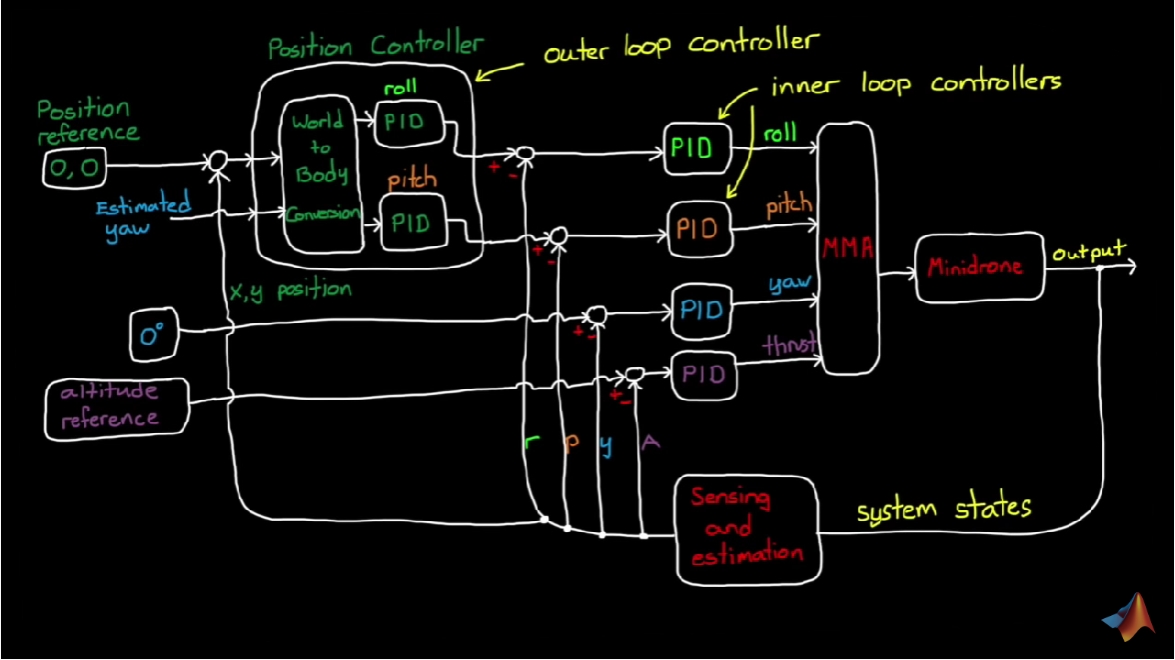 Position Controller
outer loop controller
inner loop controllers
Position
reference
0, 0
Estimated
yaw
World
to
Body
Conversion
roll
PID
pitch
PID
+
-
+
-
+
-
+
-
PID
roll
PID
pitch
PID
yaw
PID
thrust
MMA
Minidrone
output
x,y position
0°
altitude
reference
r
p
y
A
Sensing
and
estimation
system states